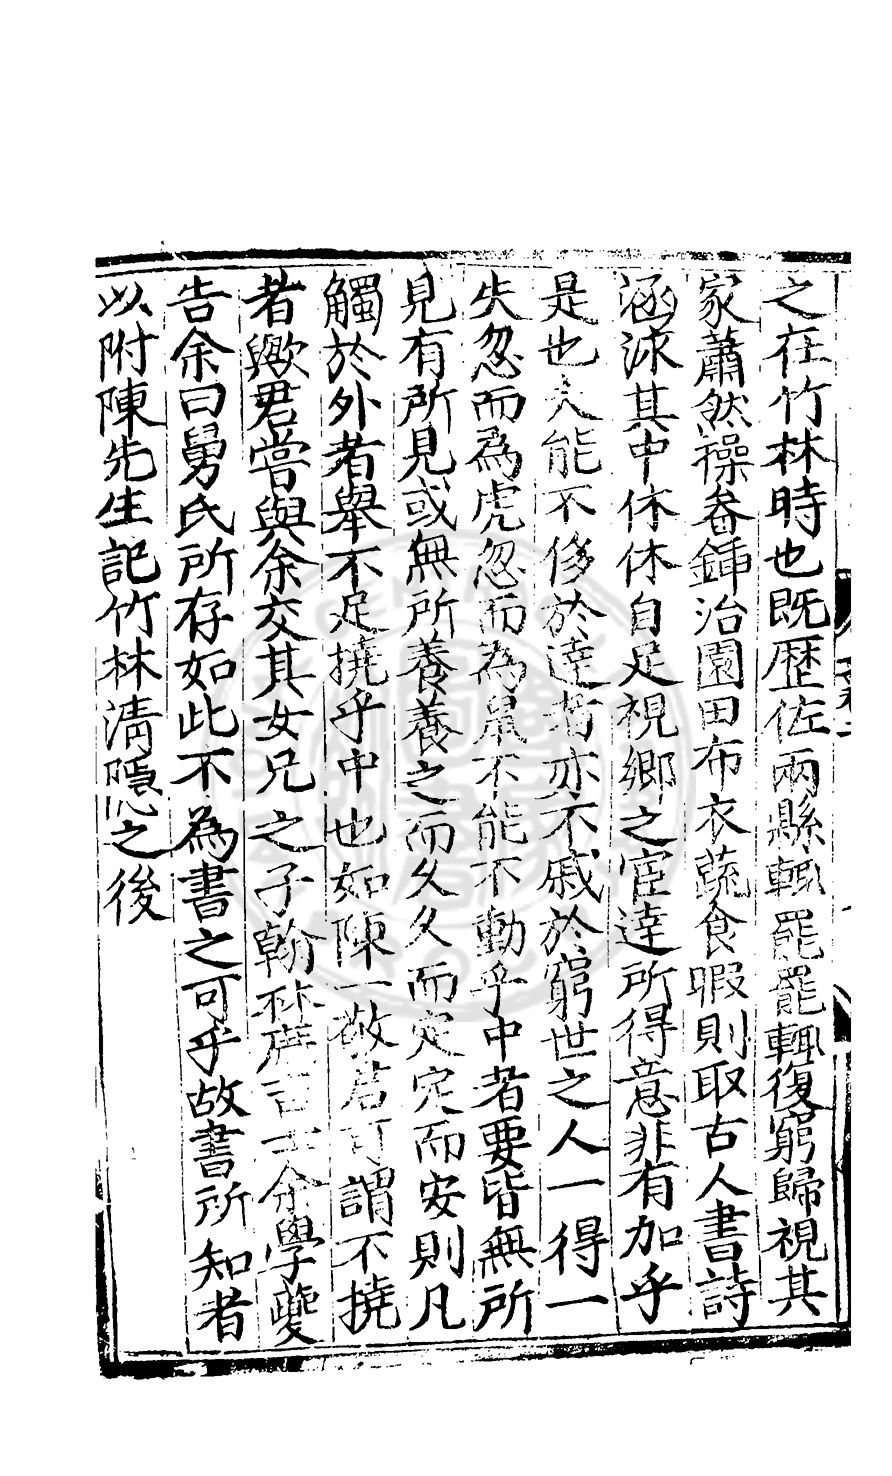 之在竹林時也既歴佐兩縣輒罷罷輒復窮歸視其
家蕭然操畚鍤治園田布衣蔬食暇則取古人書詩
涵泳其中休休自足視鄉之宦達所得意非有加乎
是也夫能不侈於達者亦不戚於窮世之人一得一
失忽而為虎忽而為鼠不能不動乎中者要皆無所
見有所見或無所養養之而久久而定定而安則凡
觸於外者舉不足撓乎中也如陳一敬君可謂不撓
者歟君嘗與余交其女兄之子翰林庶吉士余學夔
告余曰舅氏所存如此不為書之可乎故書所知者
以附陳先生記竹林淸隱之後